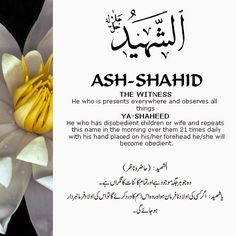 الشَّهِيدُ
ASH-SHAHID
THE WITNESS
He who is presents everywhere and observes all
things
YA-SHAHEED
He who has disobedient children or wife and repeats
this name in the morning over them 21 times daily
with his hand placed on his/her forehead he/she will
become obedient.
الشھید: (حاضروناظر)
وہ جو ہر جگہ موجود ہے اور تمام کائنات کا نگراں ہے۔
یاشھید: اگر کسی کی اولاد نافرمان ہو اور وہ اس اسم کا ورد کرے گا تو اس کی اولاد فرمانبردار
ہو جائے گی۔